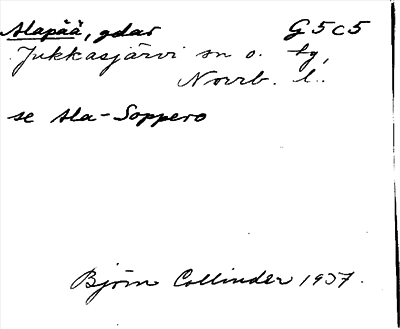 Alapää, gdar G5c5
Jukkasjärvi sn o. tg,
Norrb. l.
se Ala-Soppero
Björn Collinder 1937.